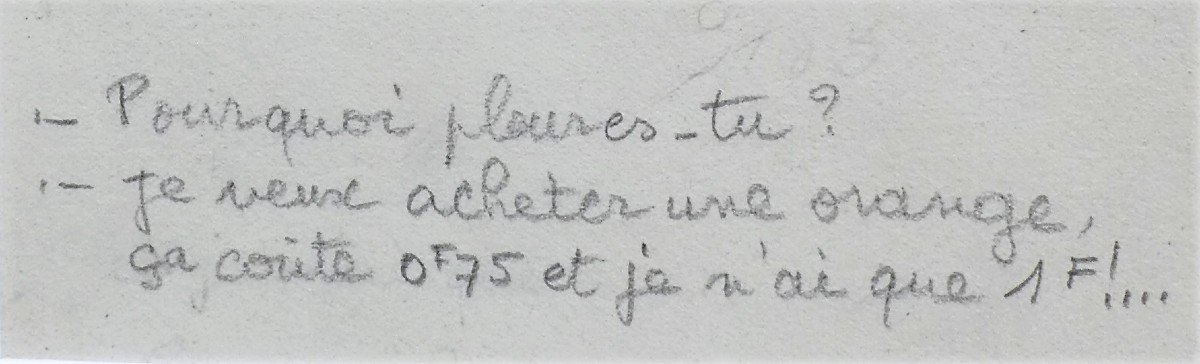 .– Pourquoi pleures-tu ?
.– Je veux acheter une orange,
ça coûte 0F75 et je n'ai que 1F!....